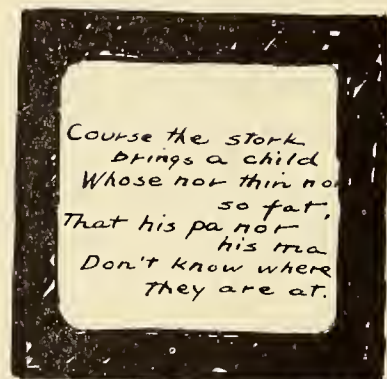 Course the stork
brings a child
Whose nor thin nor
so fat,
That his pa nor
his ma
Don't know where
They are at.